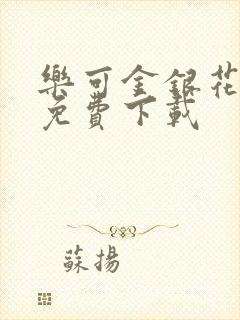 樂可金銀花
免費下載
蘇揚